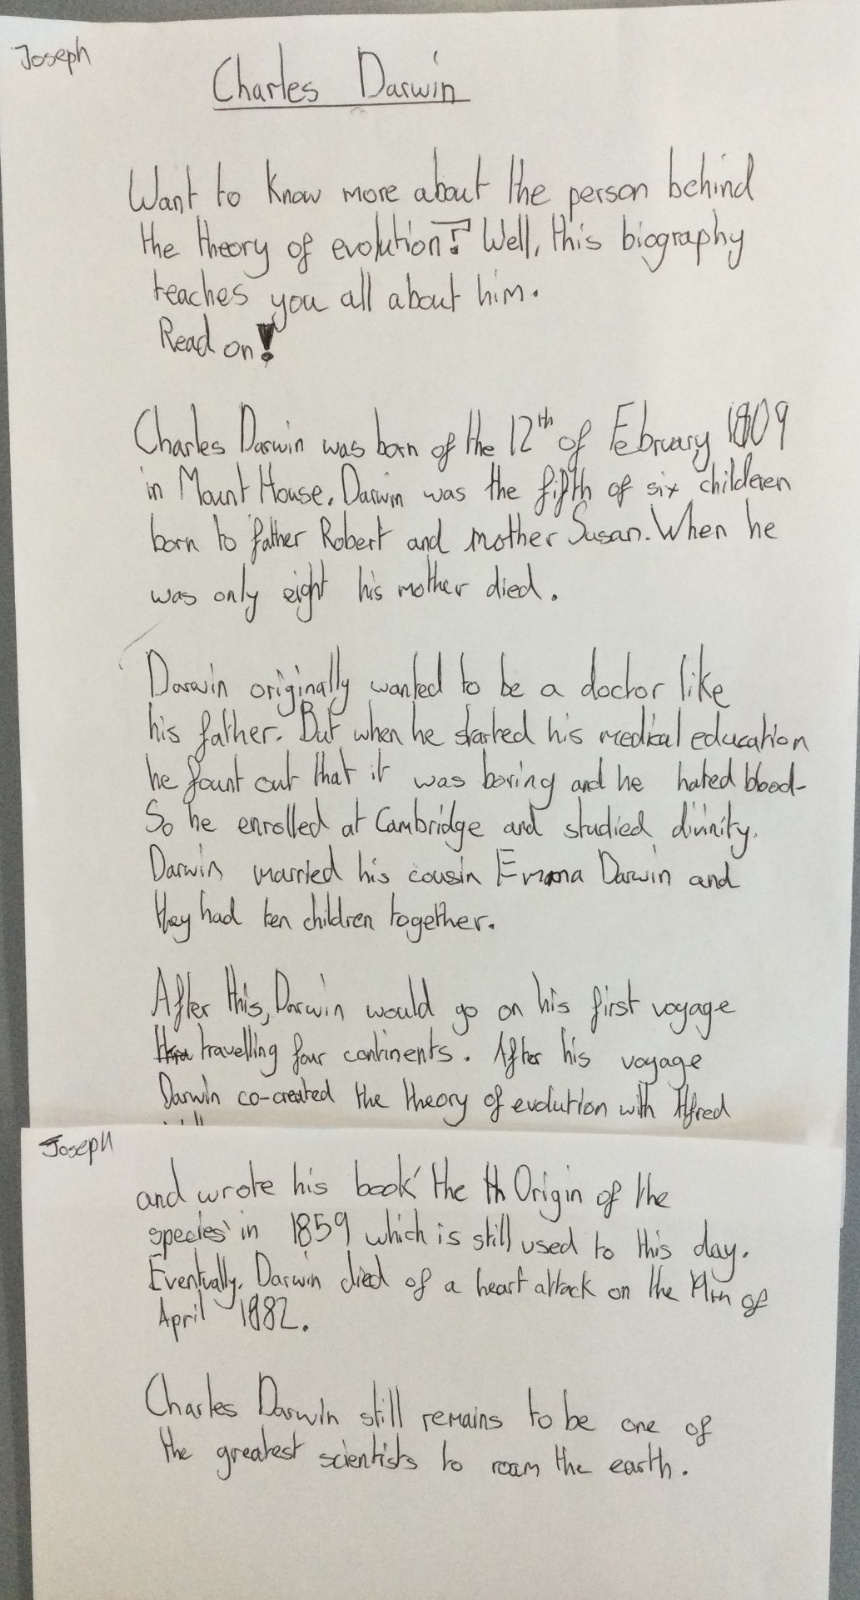 Joseph
Charles Darwin
Want to know more about the person behind
the theory of evolution? Well, this biography
teaches you all about him.
Read on!
Charles Darwin was born of the 12th of February 1809
in Mount House. Darwin was the fifth of six childeren
born to father Robert and mother Susan. When he
was only eight his mother died.
Darwin originally wanted to be a doctor like
his father. But when he started his medical education
he fount out that it was boring and he hated blood.
So he enrolled at Cambridge and studied divinity.
Darwin married his cousin Emma Darwin and
they had ten children together.
After this, Darwin would go on his first voyage
travelling four continents. After his voyage
Darwin co-created the theory of evolution with Alfred
Joseph
and wrote his book 'the th Origin of the
species' in 1859 which is still used to this day.
Eventually, Darwin died of a heart attack on the 19th of
April 1882.
Charles Darwin still remains to be one of
the greatest scientists to roam the earth.